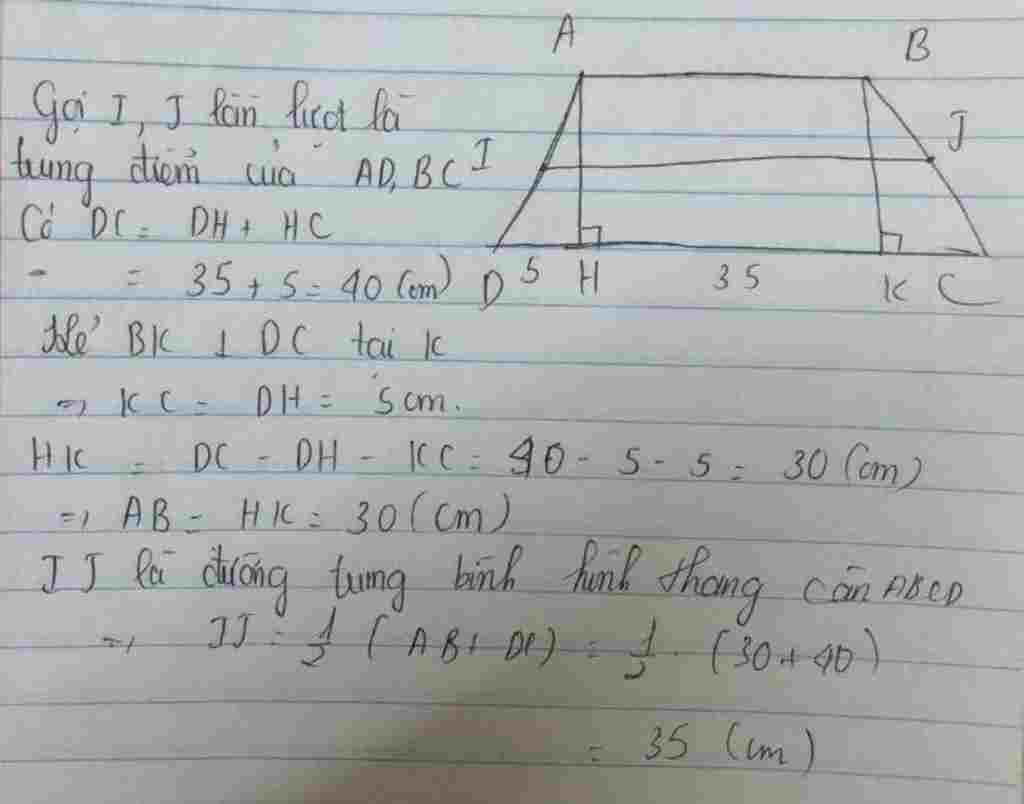 A
B
Gọi I, J lần lượt là
trung điểm của AD, BC
I
J
Có DC = DH + HC
= 35 + 5 = 40 (cm)
D
5
H
35
K
C
Kẻ BK ⊥ DC tại K
=> KC = DH = 5cm.
HK = DC - DH - KC = 40 - 5 - 5 = 30 (cm)
=> AB = HK = 30 (cm)
IJ là đường trung bình hình thang cân ABCD
=> IJ = 1/2 (AB + DC) = 1/2 . (30 + 40)
= 35 (cm)